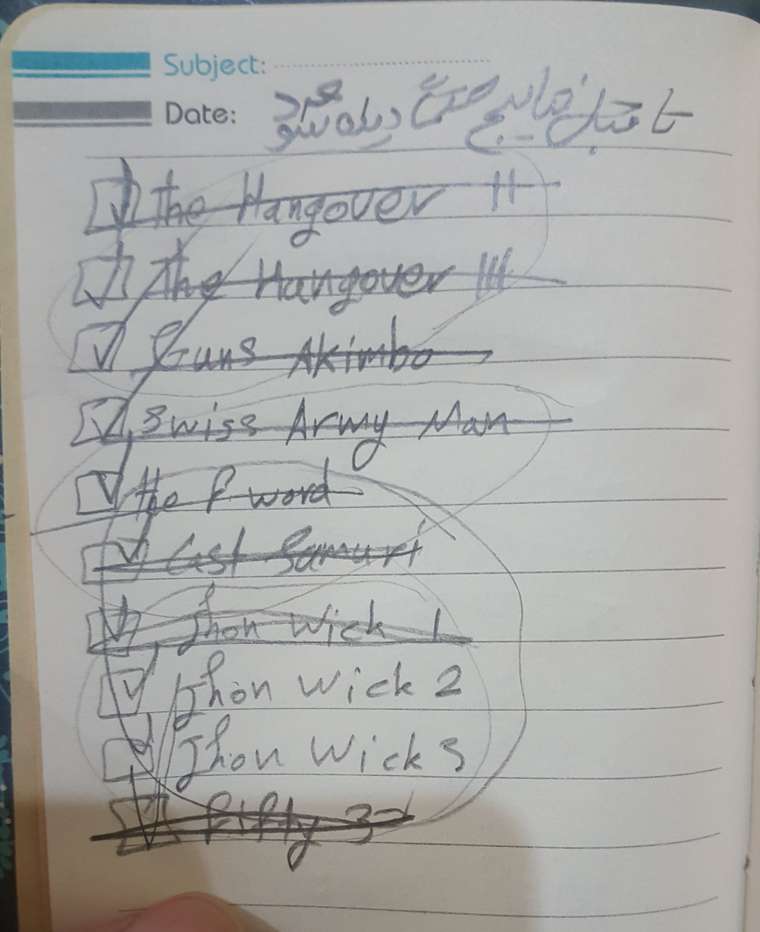 Subject:
Date: تا قبل نتایج حتما دیده شود
The Hangover II
The Hangover III
Guns Akimbo
Swiss Army Man
the f word
Last Samuri
Jhon Wick 1
Jhon Wick 2
Jhon Wick 3
fifty 3